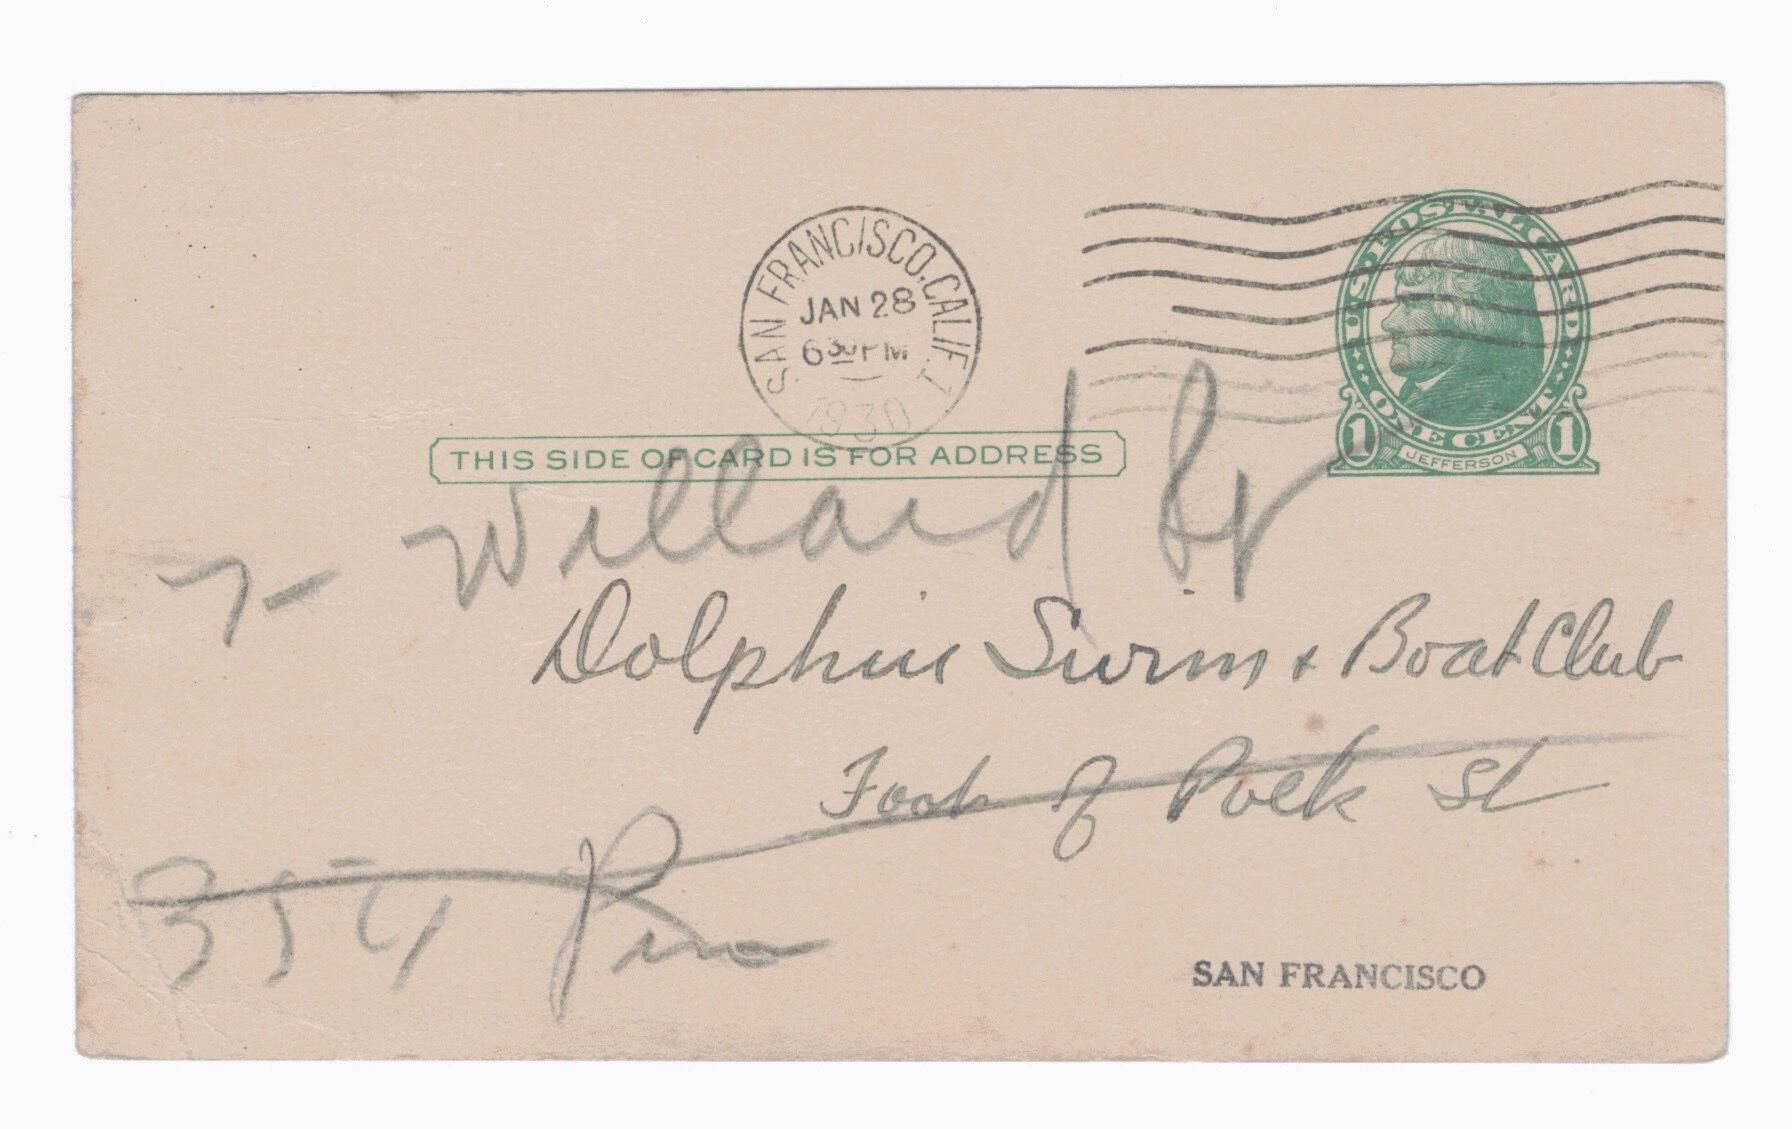 SAN FRANCISCO, CALIF. 1
JAN 28
6 30 PM
1930
U.S. POSTAL CARD
ONE CENT
1 JEFFERSON 1
THIS SIDE OF CARD IS FOR ADDRESS
Willard
Dolphin Swim + Boat Club
Foot of Polk St
354 Pine
SAN FRANCISCO